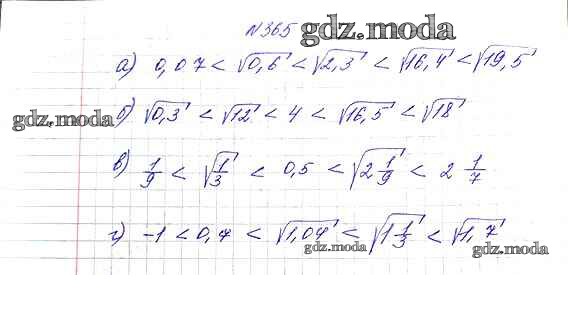 N 365 gdz.moda
а) 0,07 < √0,6 < √2,3 < √16,4 < √19,5
gdz.moda б) √0,3 < √12 < 4 < √16,5 < √18
в) 1/9 < √1/3 < 0,5 < √2 1/9 < 2 1/7
г) -1 < 0,7 < √1,04 < √1 1/3 < √1,7
gdz.moda gdz.moda